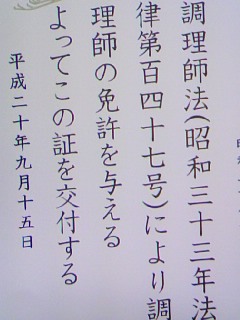 調理師法(昭和三十三年法
律第百四十七号)により調
理師の免許を与える
よってこの証を交付する
平成二十年九月十五日